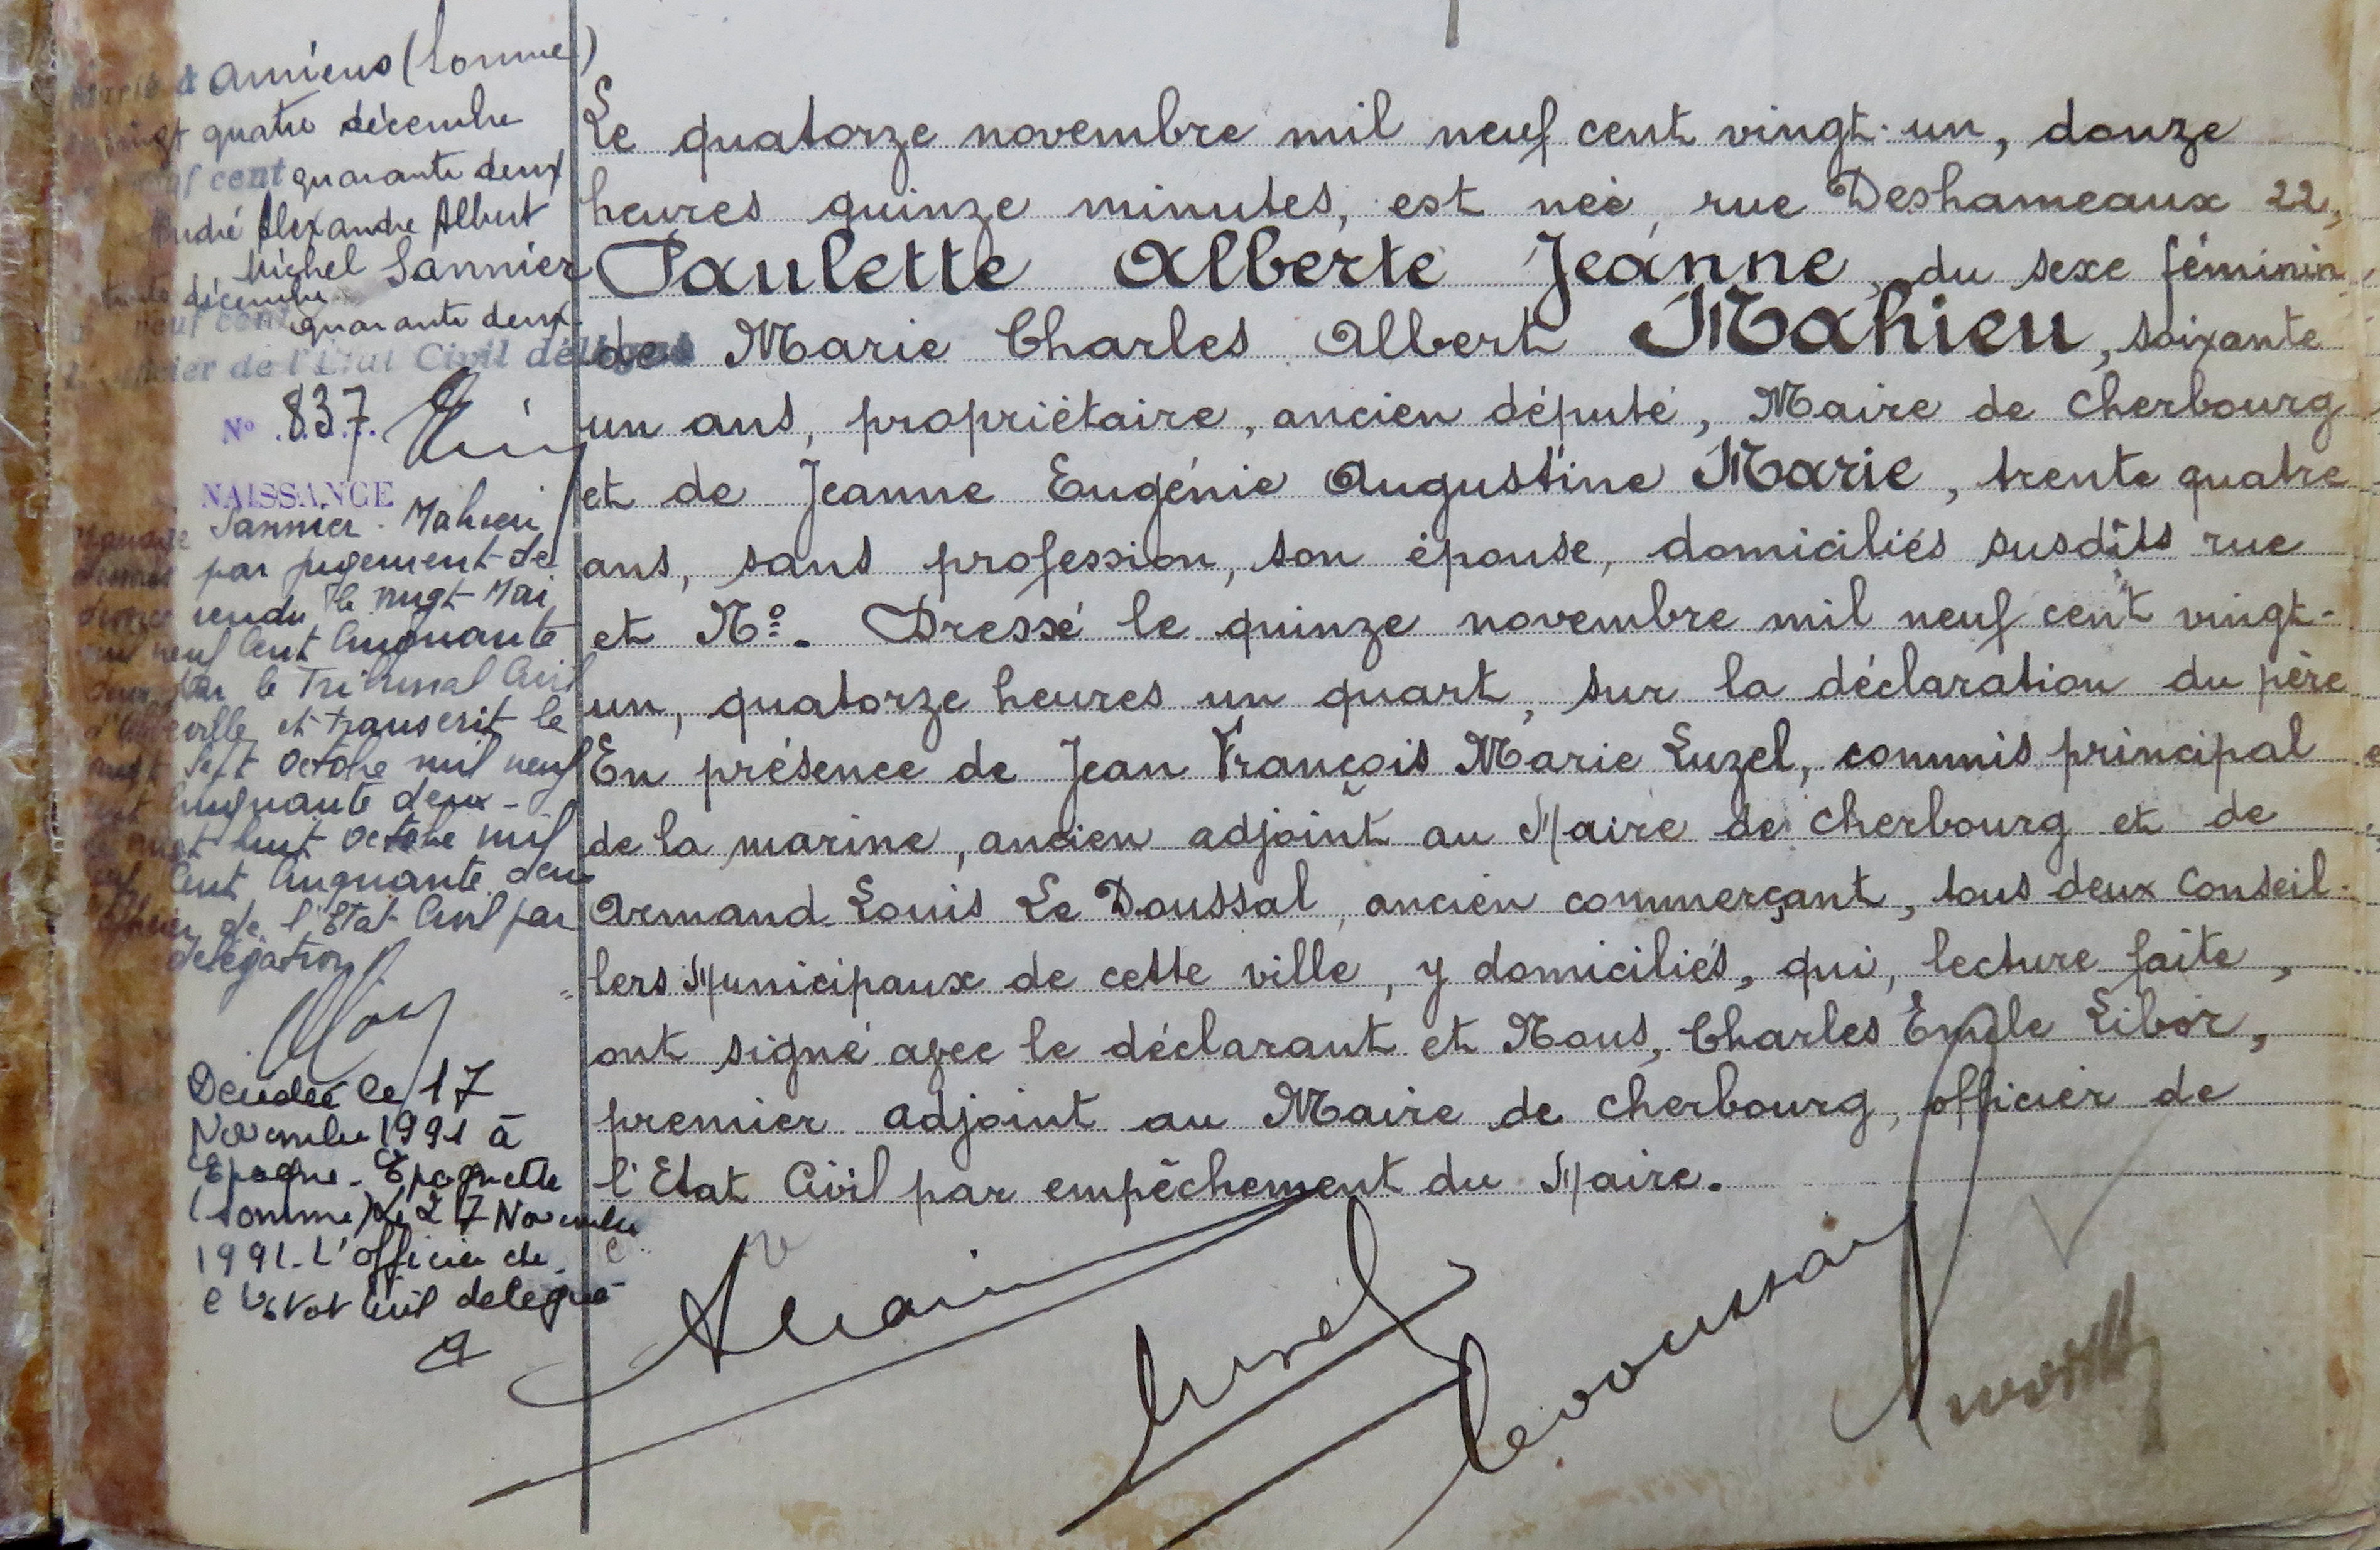 Marié à Amiens (Somme)
vingt quatre décembre
neuf cent quarante deux
André Alexandre Albert
Michel Sannier
trente décembre
neuf cent quarante deux
l'Officier de l'Etat Civil délégué
N° 837
NAISSANCE
Mariage Sannier - Mahieu
dissous par jugement de
divorce rendu le vingt Mai
mil neuf cent cinquante
deux par le Tribunal Civil
d'Abbeville et transcrit le
vingt sept Octobre mil neuf
cent cinquante deux -
vingt huit Octobre mil
neuf cent cinquante deux
l'Officier de l'Etat Civil par
délégation
Décédée le 17
Novembre 1991 à
Epagne-Epagnette
(Somme) Le 27 Novembre
1991. L'officier de
l'Etat Civil délégué
Le quatorze novembre mil neuf cent vingt-un, douze
heures quinze minutes, est née, rue Deshameaux 22,
Paulette Alberte Jeanne, du sexe féminin,
de Marie Charles Albert Mahieu, soixante
un ans, propriétaire, ancien député, Maire de Cherbourg
et de Jeanne Eugénie Augustine Marie, trente quatre
ans, sans profession, son épouse, domiciliés susdits rue
et N°. Dressé le quinze novembre mil neuf cent vingt-
un, quatorze heures un quart, sur la déclaration du père
En présence de Jean François Marie Luzel, commis principal
de la marine, ancien adjoint au Maire de Cherbourg et de
Armand Louis Le Doussal, ancien commerçant, tous deux Conseil-
lers Municipaux de cette ville, y domiciliés, qui, lecture faite,
ont signé avec le déclarant et Nous, Charles Emile Libor,
premier adjoint au Maire de Cherbourg, officier de
l'Etat Civil par empêchement du Maire.
Luzel
Le Doussal